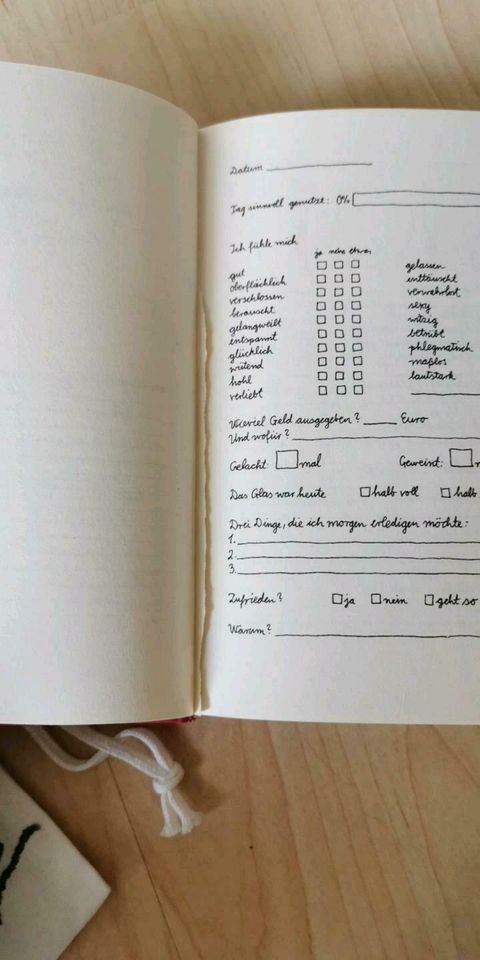 Datum
Tag sinnvoll genutzt: 0%
Ich fühle mich
ja nein etwas
gut
oberflächlich
verschlossen
berauscht
gelangweilt
entspannt
glücklich
wütend
hohl
verliebt
gelassen
enttäuscht
verwahrlost
sexy
witzig
betrübt
phlegmatisch
maßlos
lautstark
Wieviel Geld ausgegeben? Euro
Und wofür?
Gelacht: mal Geweint:
Das Glas war heute halb voll halb
Drei Dinge, die ich morgen erledigen möchte:
1.
2.
3.
Zufrieden? ja nein geht so
Warum?